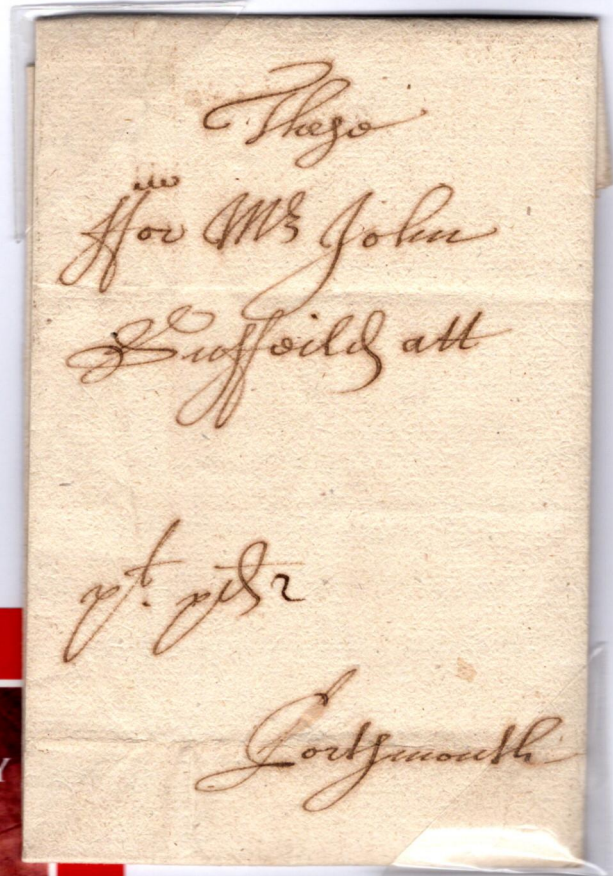 These
ffor Mr John
Duffeild att
pt. pd 2
Portsmouth
Y